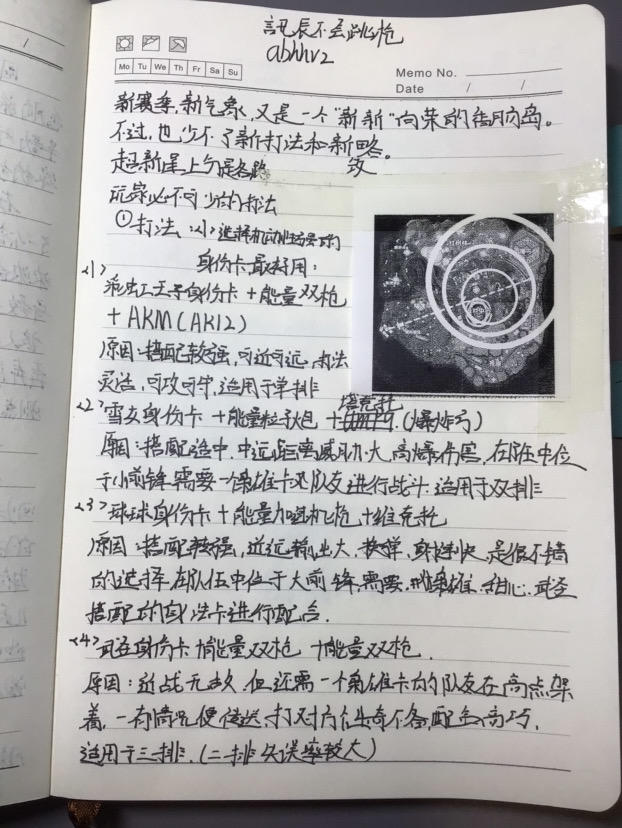 辰不会跳枪
abhhv2
Mo Tu We Th Fr Sa Su
Memo No.
Date / /
新赛季,新气象,又是一个"新新"向荣的信用岛。
不过,也少不了新打法和新略。
超新星上勺是各路
玩家必不可少的打法
①打法:小选择机动性强的
身份卡最好用:
<1>
彩虹王子身份卡+能量双枪
+AKM(AK12)
原因:搭配较强,可近可远,打法
灵活,可攻可守,适用于单排
<2>雪女身份卡+能量粒子炮+维克托(爆炸弓)
原因:搭配适中,中远距离威力大,高爆伤害,在队伍中位
于小前锋,需要一个枭雄卡返队友进行战斗.适用于双排
<3>球球身份卡+能量加特机枪+维克托
原因:搭配较强,近远输出大,换弹,射速快,是很不错
的选择,在队伍中位于大前锋,需要枭雄.甜心.武圣
搭配的身法卡进行配合.
<4>武圣身份卡+能量双枪+能量双枪.
原因:近战无敌,但还需一个枭雄卡的队友在高点架
着,一有情况便传送,打对方个出奇不备,配合高巧,
适用于三排.(二排失误率较大)